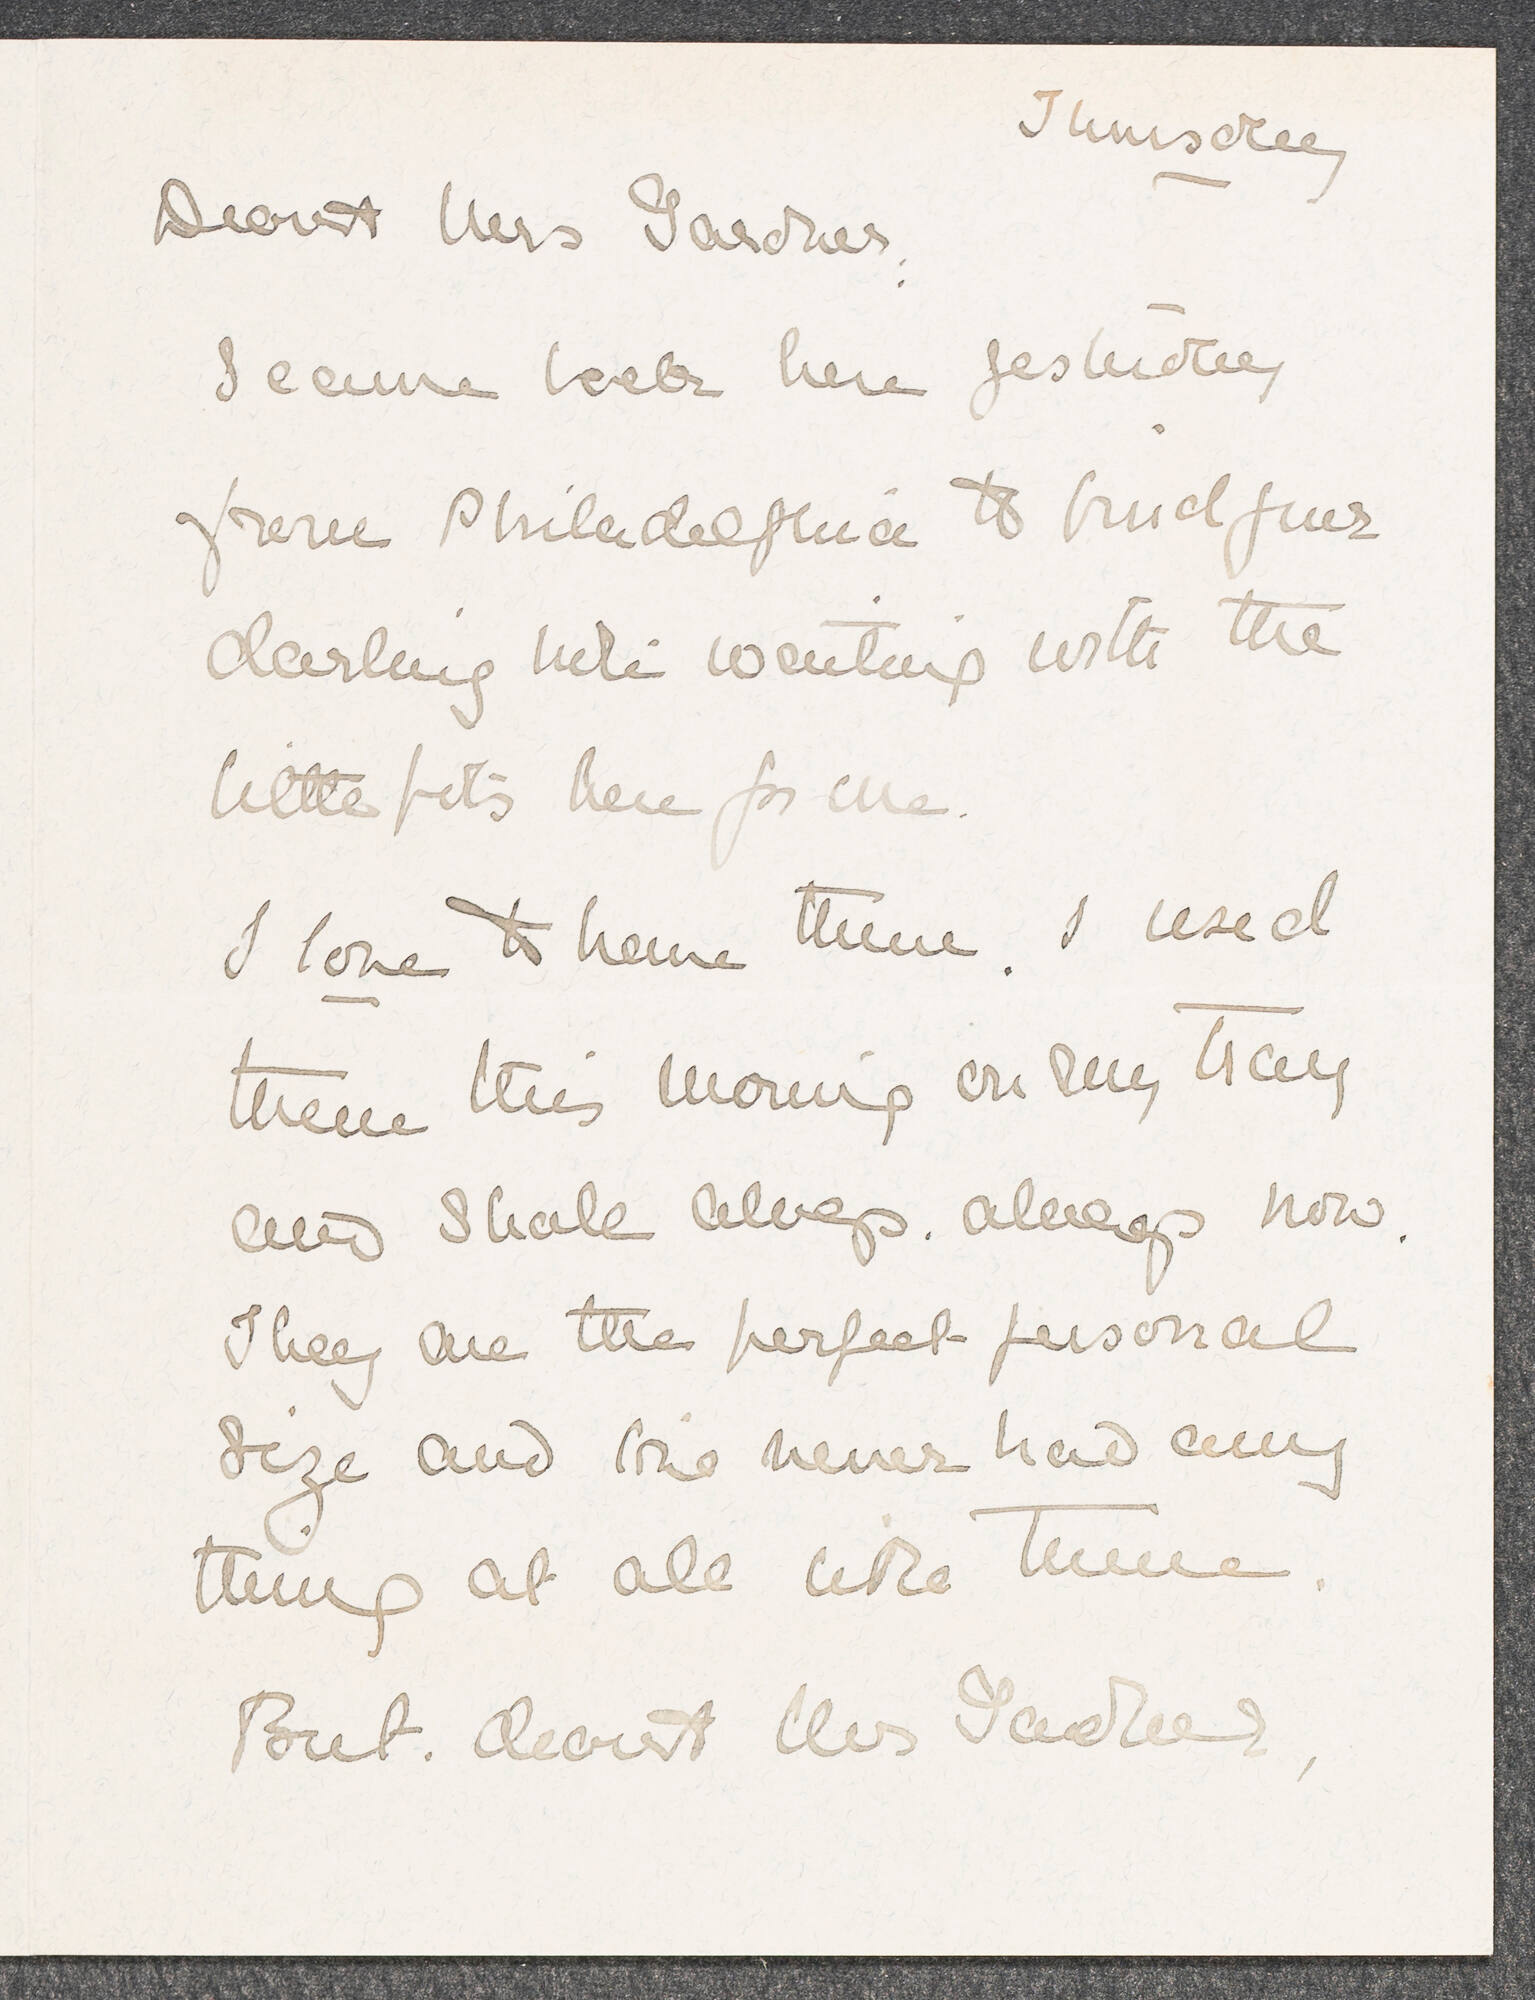 Thursday
Dearest Mrs Gardner.
I came back here yesterday
from Philadelphia to find your
darling note waiting with the
little pots here for me.
I love to have them. I used
them this morning on my tray
and shall always. always now.
They are the perfect personal
size and I've never had any
thing at all like them.
But. dearest Mrs Gardner,